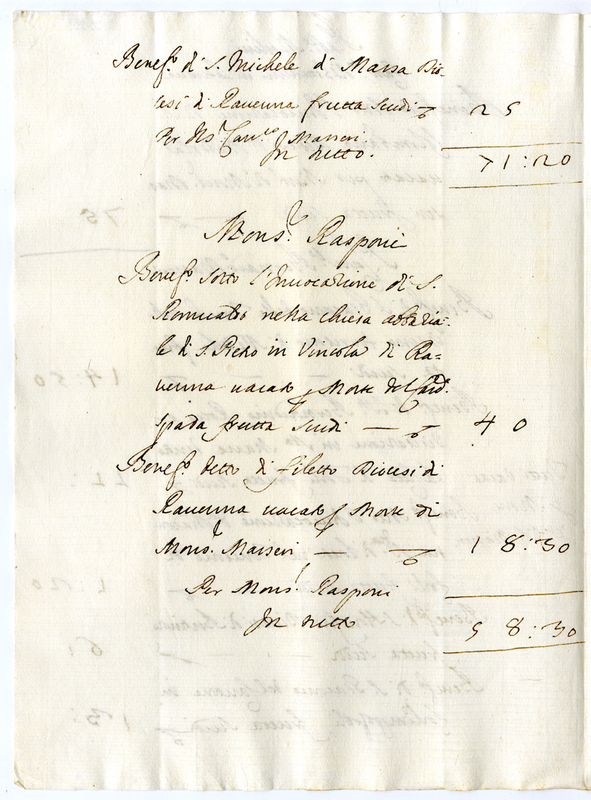 Benef.o di S. Michele di Massa Dio
cesi di Ravenna frutta scudi 25
Per Ms.r Masseri
In tutto. 71:20
Mons.r Rasponi
Benef.o sotto l'Invocazione di S.
Romualdo nella chiesa abbazia
le di S. Pietro in Vincola di Ra=
venna vacato p Morte del Card.
spada frutta scudi — 40
Benef.o detto di Filetto Diocesi di
Ravenna vacato p Morte di
Mons.r Masseri — 18:30
Per Mons.r Rasponi
In tutto 58:30